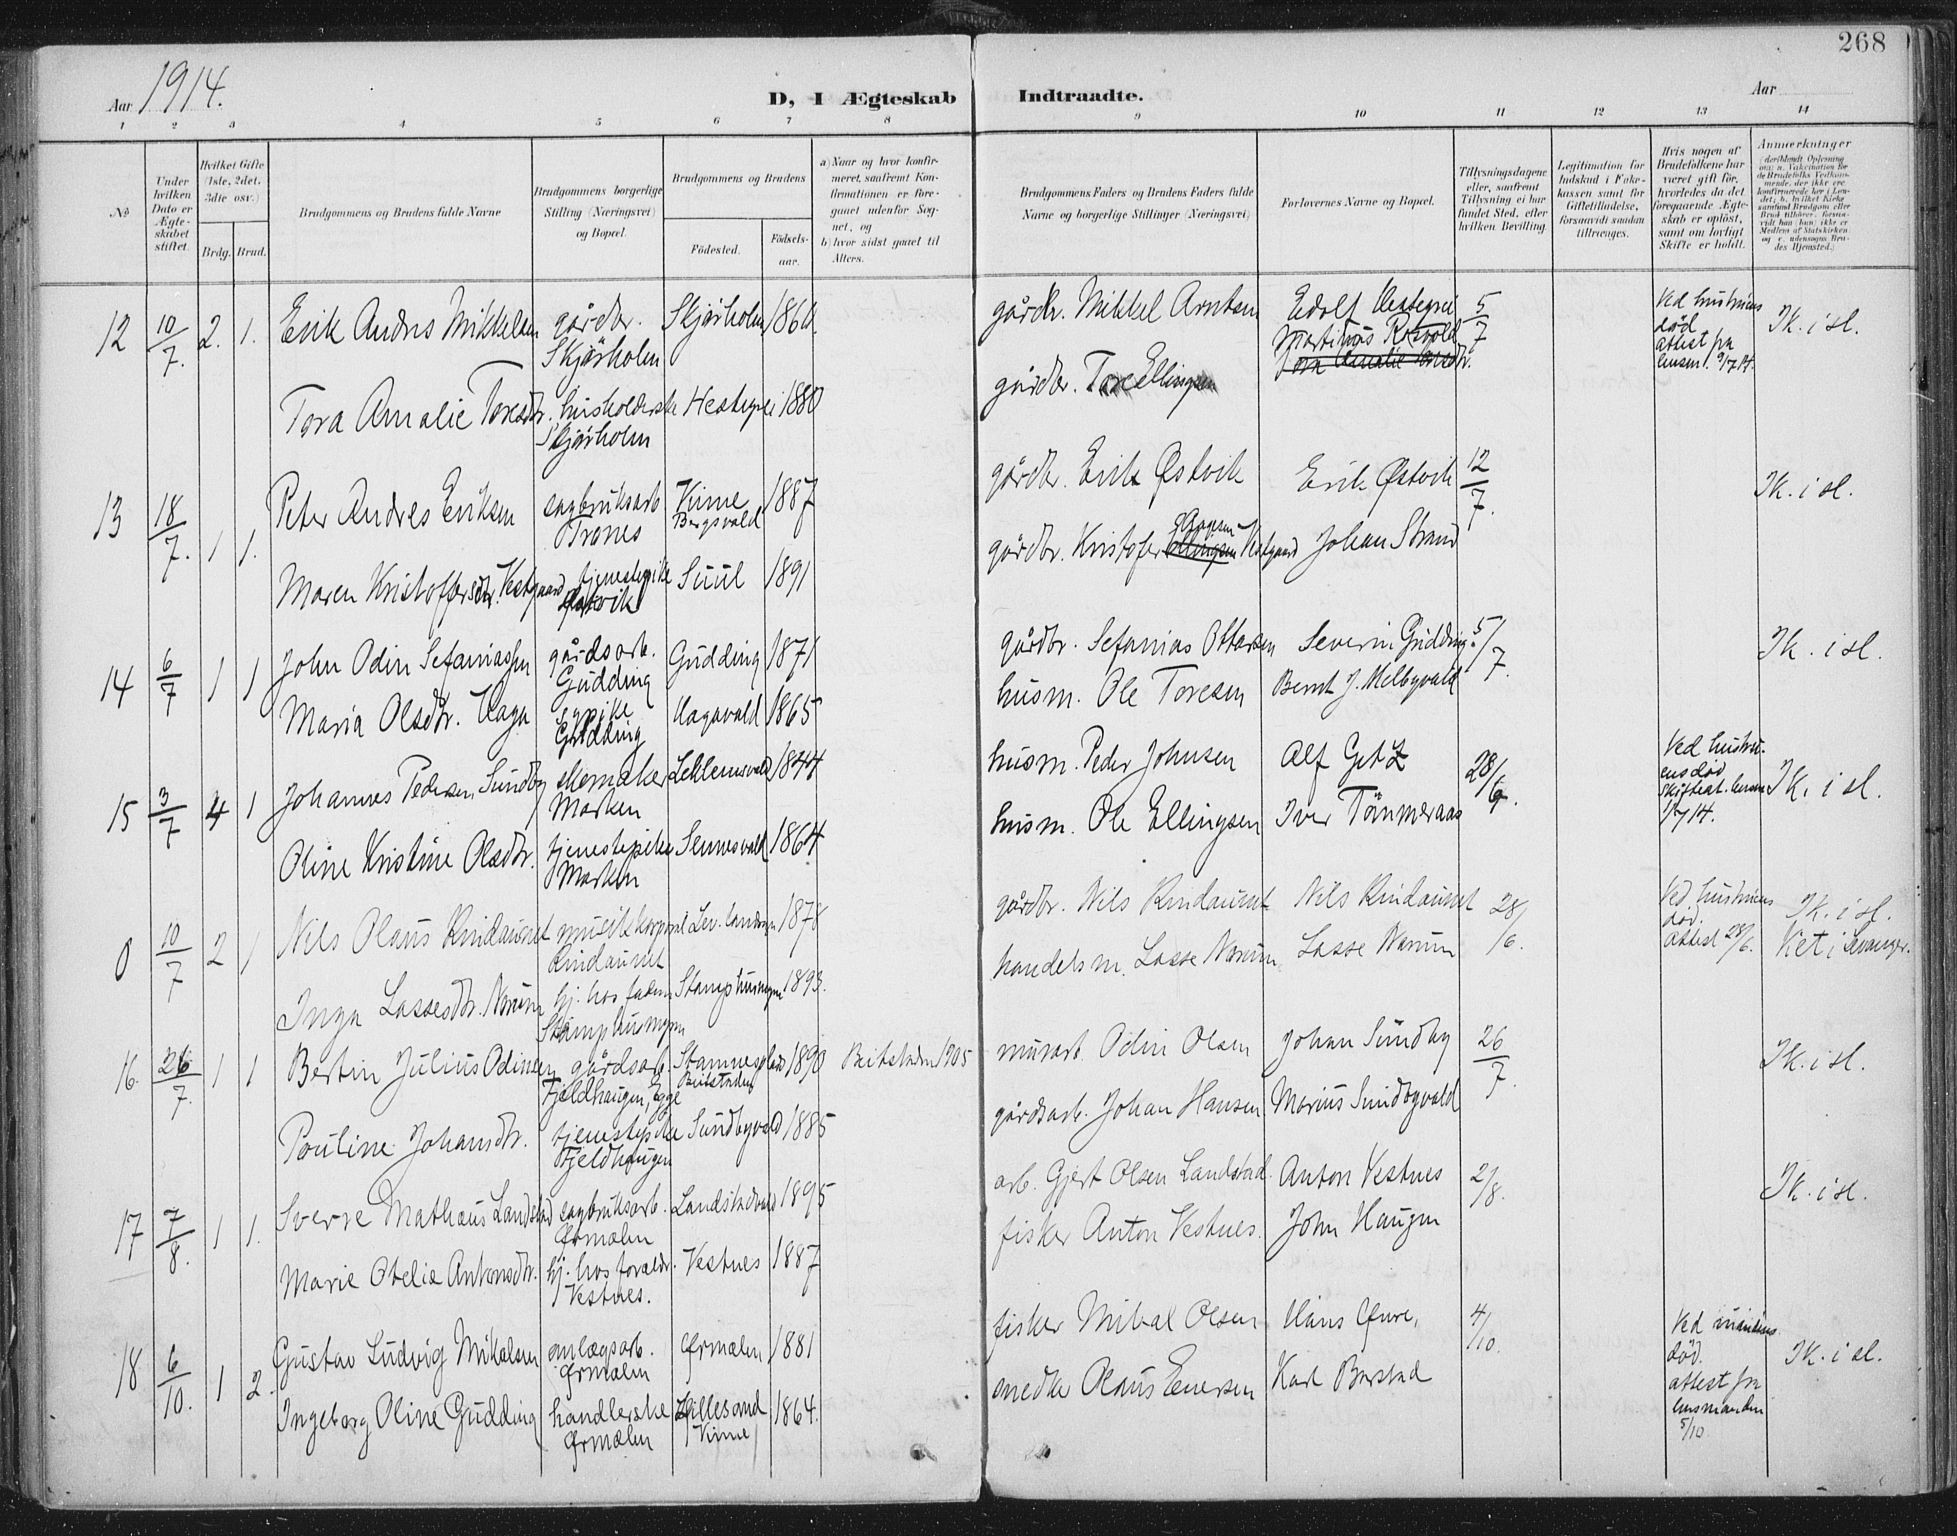 268
Aar 1914.
D, I Ægteskab Indtraadte.
Aar
1 2 3 4 5 6 7 8 9 10 11 12 13 14
No
Under hvilken Dato er Ægteskabet stiftet.
Hvilket Gifte (1ste, 2det, 3die osv.)
Brdg. Brud.
Brudgommens og Brudens fulde Navne
Brudgommens borgerlige Stilling (Næringsvei) og Bopæl.
Brudgommens og Brudens
Födested.
Födsels-aar.
a) Naar og hvor konfirmeret, saafremt Konfirmationen er foregaaet udenfor Sognet, og
b) hvor sidst gaaet til Alters.
Brudgommens Faders og Brudens Faders fulde Navne og borgerlige Stillinger (Næringsvei)
Forlovernes Navne og Bopæl.
Tillysningsdagene eller, saafremt Tillysning ei har fundet Sted, efter hvilken Bevilling.
Legitimation for Indskud i Enkekassen samt for Giftetilladelse, forsaavidt saadan tiltrænges.
Hvis nogen af Brudefolkene har været gift før, hvorledes da det foregaaende Ægteskab er opløst, samt om lovligt Skifte er holdt.
Anmerkninger
12 10/7. 2. 1. Erik Andres Mikkelsen gårdbr. Skjørholm Skjørholm 1860. gårdbr. Mikkel Arntsen Edolf Hestegrei 5/7 Ved hustruens død attest fra lensm. 9/7 14. Ik. i sl.
Martinus Rosvold
Tora Amalie Toresdtr. husholderske Skjørholm Hestegrei 1880 gårdbr. Tore Ellingsen
13 18/7. 1 1. Peter Andres Eriksen sagbruksarb Trones Vinne Bergsvald 1887 gårdbr. Erik Østvik Erik Østvik 12/7. Ik. i sl.
Maren Kristoffersdtr. Vestgaard tjenestepike Østvik Suul 1891 gårdbr. Kristofer Aagesen Vestgaard Johan Strand
14 6/7 1 1 John Odin Sefaniassen gårdsarb. Gudding Gudding 1871 gårdbr. Sefanias Ottersen Severin Gudding 5/7. Ik. i sl.
Maria Olsdtr. Haga sypike Gudding Hagavald 1865 husm. Ole Toresen Bernt J. Melbyvald
15 3/7 4 1 Johannes Pedersen Sundby skomaker Marken Leklemsvald 1844 husm. Peder Johnsen Alf Getz 28/6. Ved hustruens død skifteat. lensm 1/7 14. Ik. i sl.
Oline Kristine Olsdtr. tjenestepike Marken Semesvald 1864 husm. Ole Ellingsen Iver Tømmeraas
0 10/7 2 1 Nils Olaus Rindaunet musikkorporal Rindaunet Lev. landsogn 1878 gårdbr. Nils Rindaunet Nils Rindaunet 28/6. Ved hustruens død. attest 28/6. Ik. i sl. Viet i Levanger.
Inga Lassesdtr. Norum hj. hos faderen Stamphusmyren Stamphusmyren 1893. handelsm. Lasse Norum Lasse Norum
16. 26/7. 1 1 Bertin Julius Odinsen gårdsarb. Fjeldhaugen, Egge Stamnesplads Beitstaden 1890 Beitstaden 1905 murarb. Odin Olsen Johan Sundby 26/7. Ik. i sl.
Pauline Johansdtr. tjenestepike Fjeldhaugen Sundbyvald 1885 gårdsarb. Johan Hansen Marius Sundbyvald
17 7/8. 1 1. Sverre Mathæus Landstad sagbruksarb. Ørmelen Landstadvald 1895 arb. Gjert Olsen Landstad. Anton Vestnes 2/8. Ik. i sl.
Marie Otelie Antonsdtr. hj. hos forældr. Vestnes. Vestnes 1887 fisker Anton Vestnes. John Haugen
18 6/10. 1 2. Gustav Ludvig Mikalsen anlægsarb. Ørmelen Ørmelen 1881 fisker Mikal Olsen Hans Øvre, 4/10. Ved mandens død. attest fra lensmanden 5/10 Ik. i sl.
Ingeborg Oline Gudding handlerske Ørmelen Lillesand Vinne 1864. snedker Olaus Enersen Karl Barstad